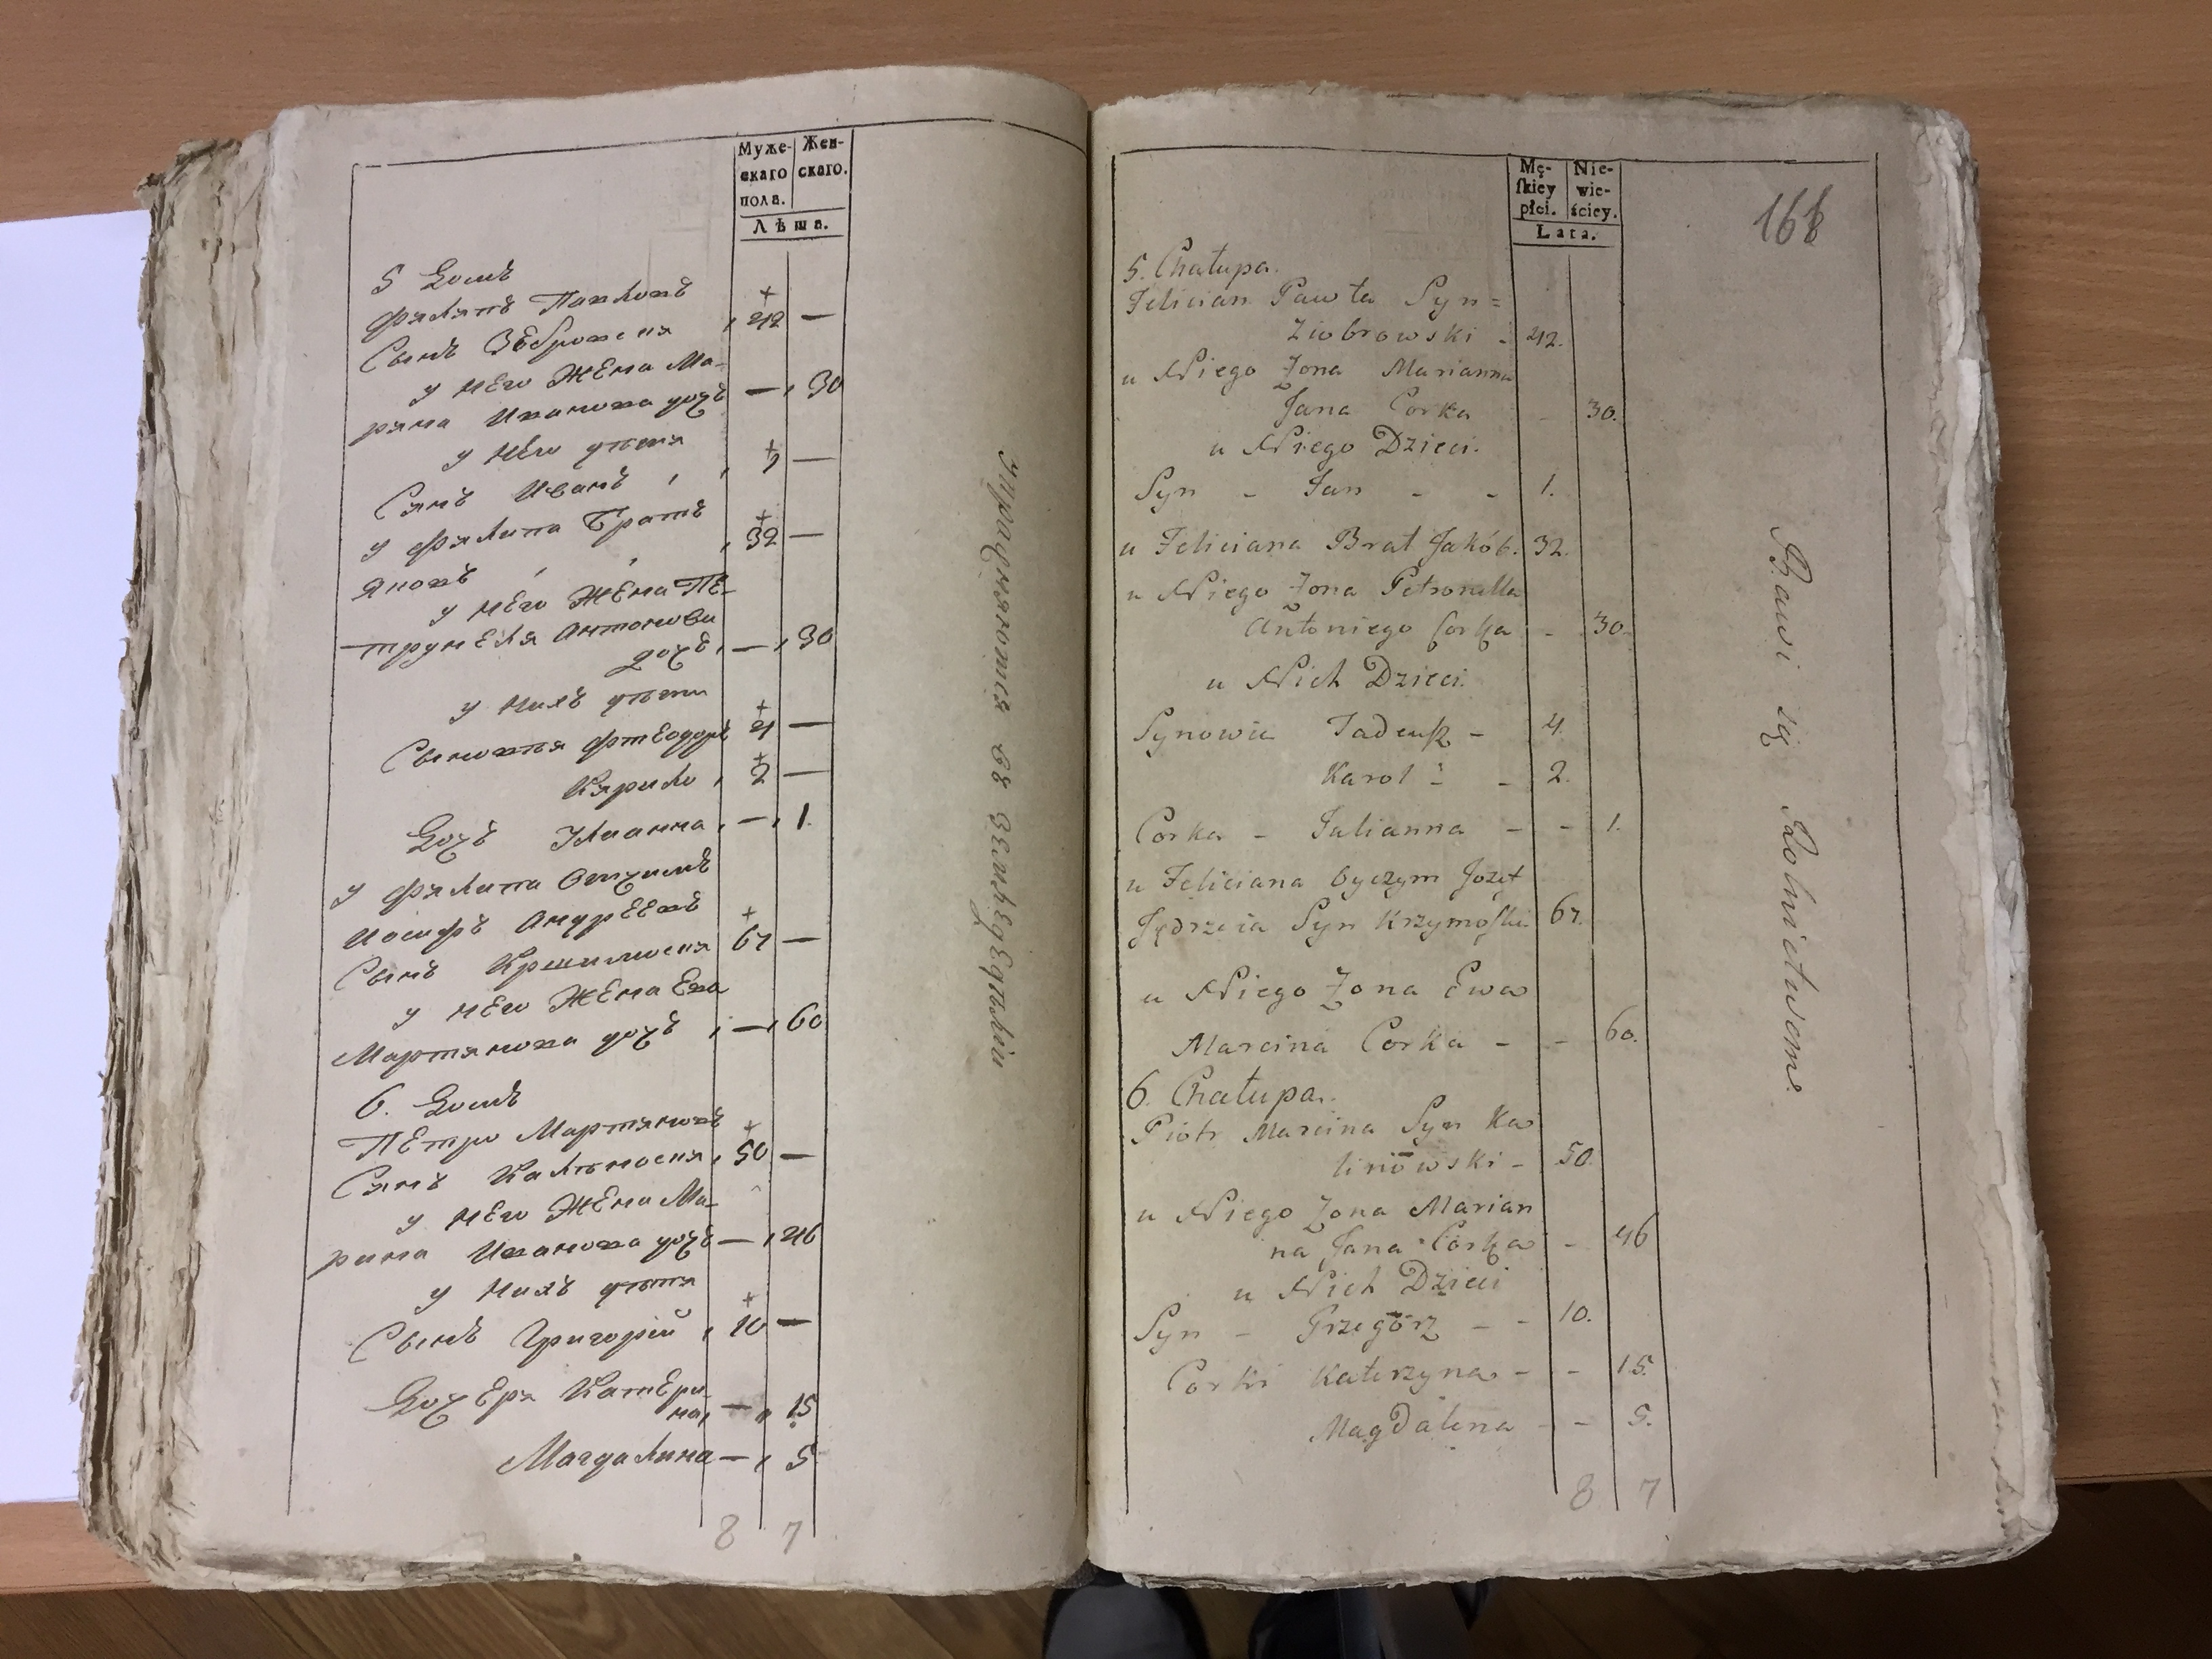 Муже-
скаго
пола.
Жен-
скаго.
Лѣта.
5 Домъ
Филипъ Павловъ
Сынъ Зебровския , 42 —
у него жена Ма-
рина Иванова дочь — , 30
у него дети
Сынъ Иванъ , , 1 —
у Филипа Братъ
Яковъ , , , 32 —
у него жена Пе-
трунеля Антонова
дочь , — , 30
у нихъ дети
Сыновья Фтеодоръ 4 —
Кярило , 2 —
Дочь Улианна , — , 1.
у Филипа Отчимъ
Иосифъ Андреевъ
Сынъ Кршимоския 67 —
у него жена Ева
Мартинова дочь , — , 60
6. Домъ
Петро Мартиновъ
Сынъ Калиноския , 50 —
у него жена Ма-
рина Иванова дочь — , 46
у нихъ дети
Сынъ Григорій , 10 —
Дочеря Катери-
на , — „ 15
Магдалина — , 5
8 7
Упражняются въ земледелии
Mę-
ſkiey
płci.
Nie-
wie-
ściey.
Lata.
168
5. Chałupa.
Felician Pawła Syn=
Ziobrowski - 42.
u Niego Żona Marianna
Jana Corka - 30.
u Niego Dzieci.
Syn - Jan - - 1.
u Feliciana Brat Jakób. 32.
u Niego Żona Petronella
Antoniego Corka - 30-
u Nich Dzieci.
Synowie Tadeusz - 4.
Karol - - 2.
Corka - Julianna - - 1.
u Feliciana Oyczym Jozef
Jędrzeia Syn Krzymoſki 67.
u Niego Żona Ewa
Marcina Corka - - 60.
6. Chałupa.
Piotr Marcina Syn Ka
linowski - 50.
u Niego Żona Marian
na Jana Corka - 46
u Nich Dzieci
Syn - Grzegorz - - 10.
Corki Katerzyna - - 15.
Magdalena - - 5.
8 7
Bawi się Rolnictwem.